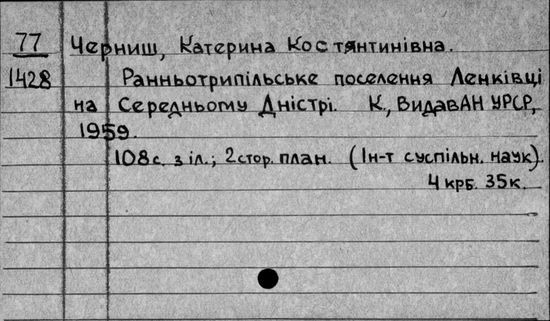 77 Черниш, Катерина Костянтинівна.
1428 Ранньотрипільське поселення Ленківці
на Середньому Дністрі. К., ВидавАН УРСР,
1959.
108с. з іл.; 2стор. план. (Ін-т суспільн. наук).
4 крб. 35к.